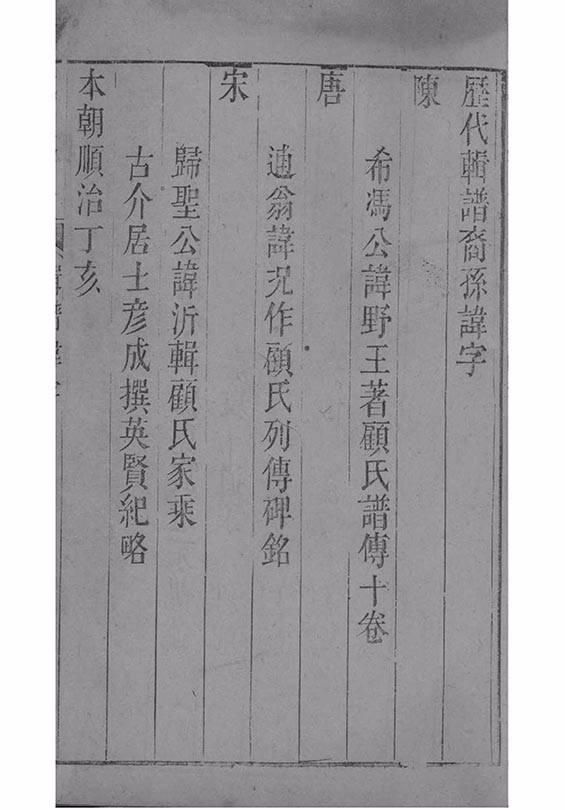 歷代輯譜裔孫諱字
陳
希馮公諱野王著顧氏譜傳十卷
唐
逋翁諱况作顧氏列傳碑銘
宋
歸聖公諱沂輯顧氏家乘
古介居士彦成撰英賢紀略
本朝順治丁亥